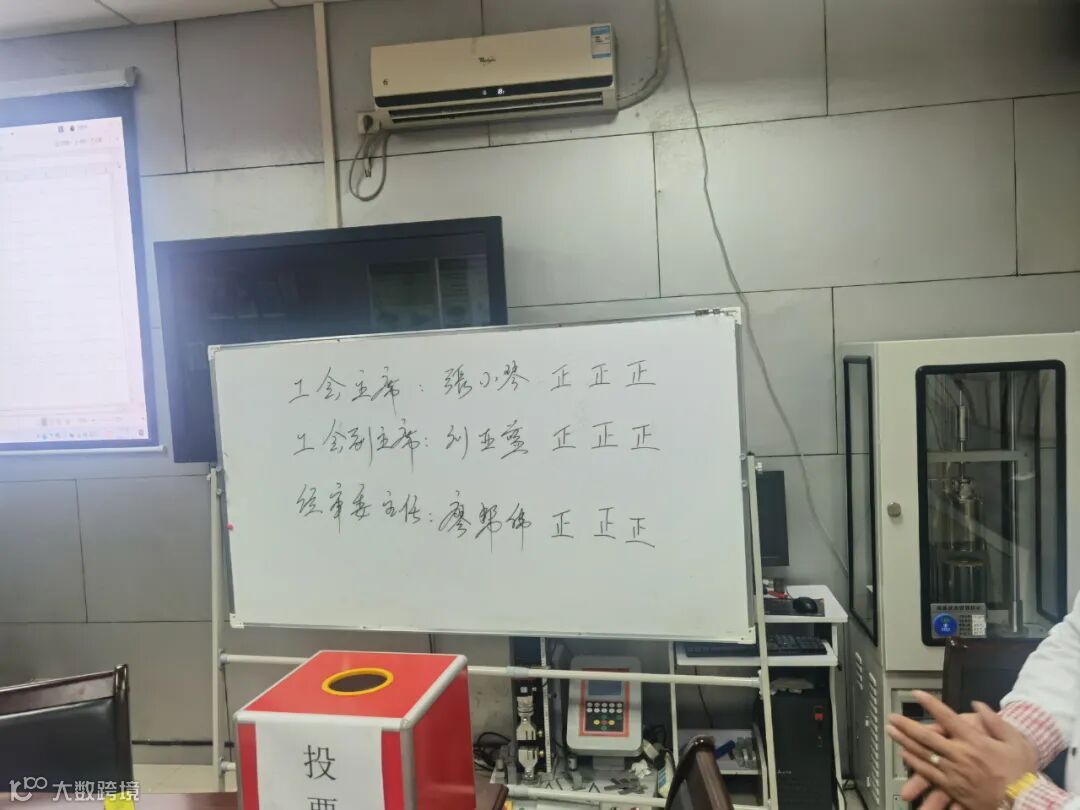 工会主席：張小琴 正 正 正
工会副主席：刘亚蓝 正 正 正
经审委主任：廖帮伟 正 正 正
投票
大数跨境